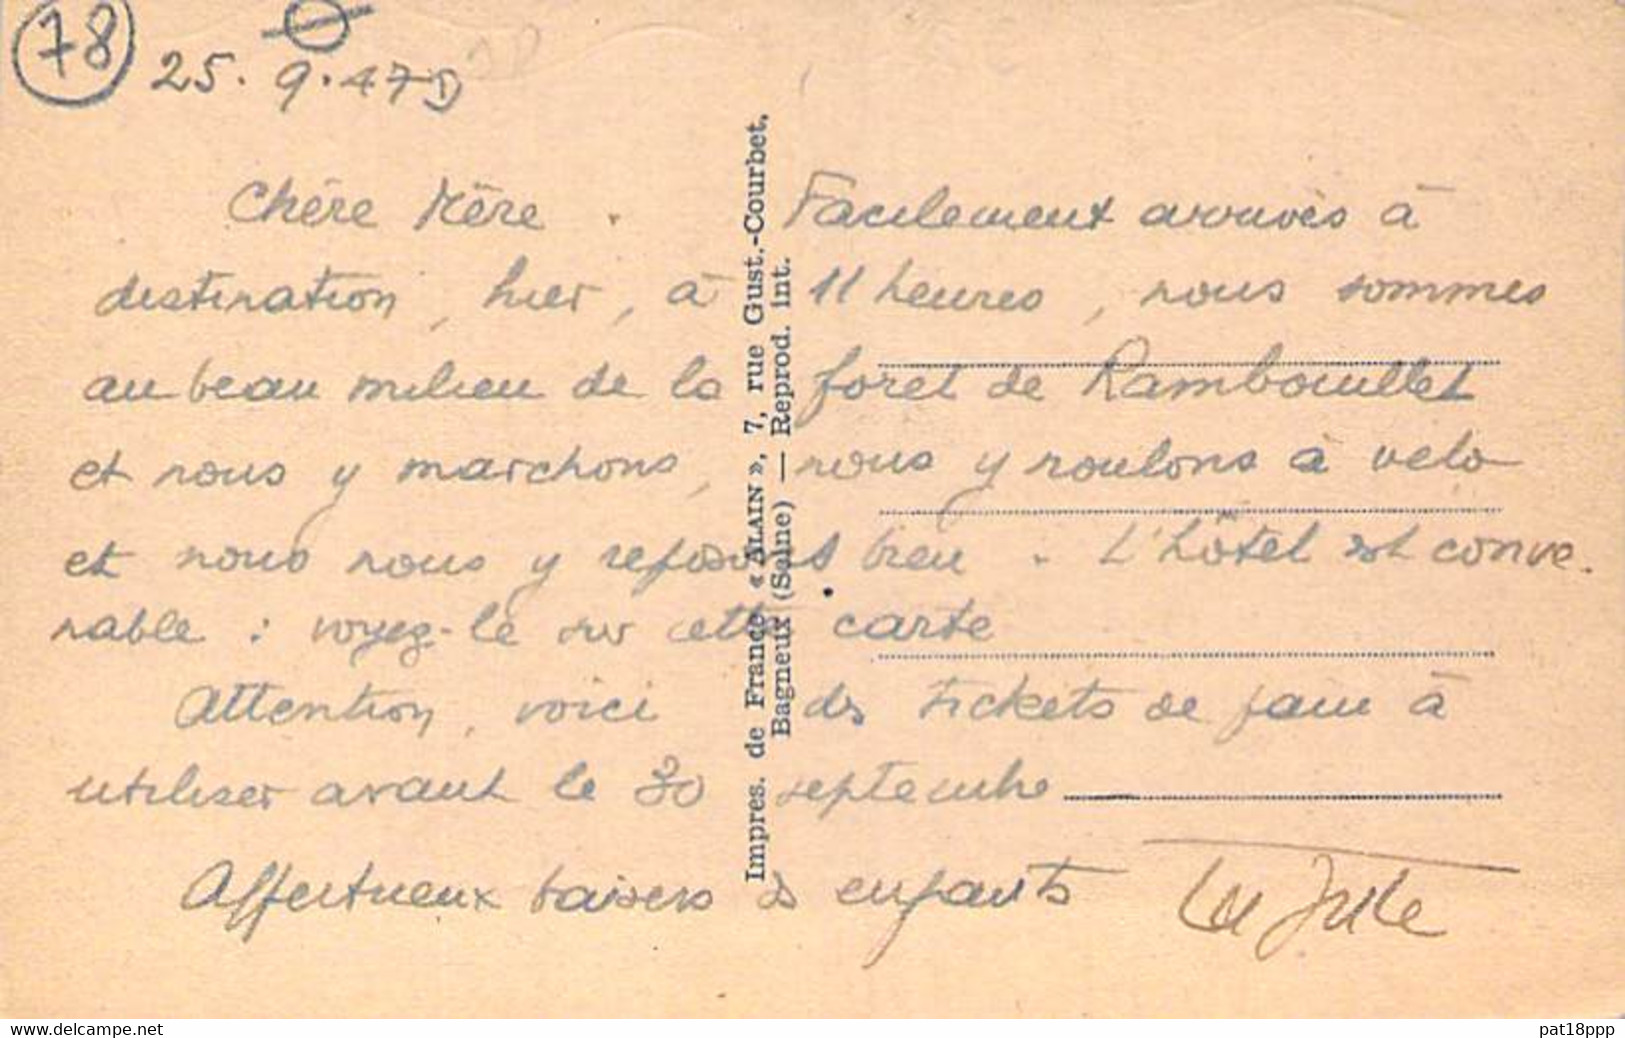 78
25.9.47
Chère Mère. Facilement arrivés à
destination, hier, à 11 heures, nous sommes
au beau milieu de la forêt de Rambouillet
et nous y marchons, nous y roulons à vélo
et nous nous y reposons bien. L'hôtel est conve-
nable : voyez-le sur cette carte
Attention, voici des tickets de pain à
utiliser avant le 30 septembre
Affectueux baisers ds enfants
Impres. de France « ALAIN », 7, rue Gust.-Courbet,
Bagneux (Seine) — Reprod. int.
www.delcampe.net
pat18ppp